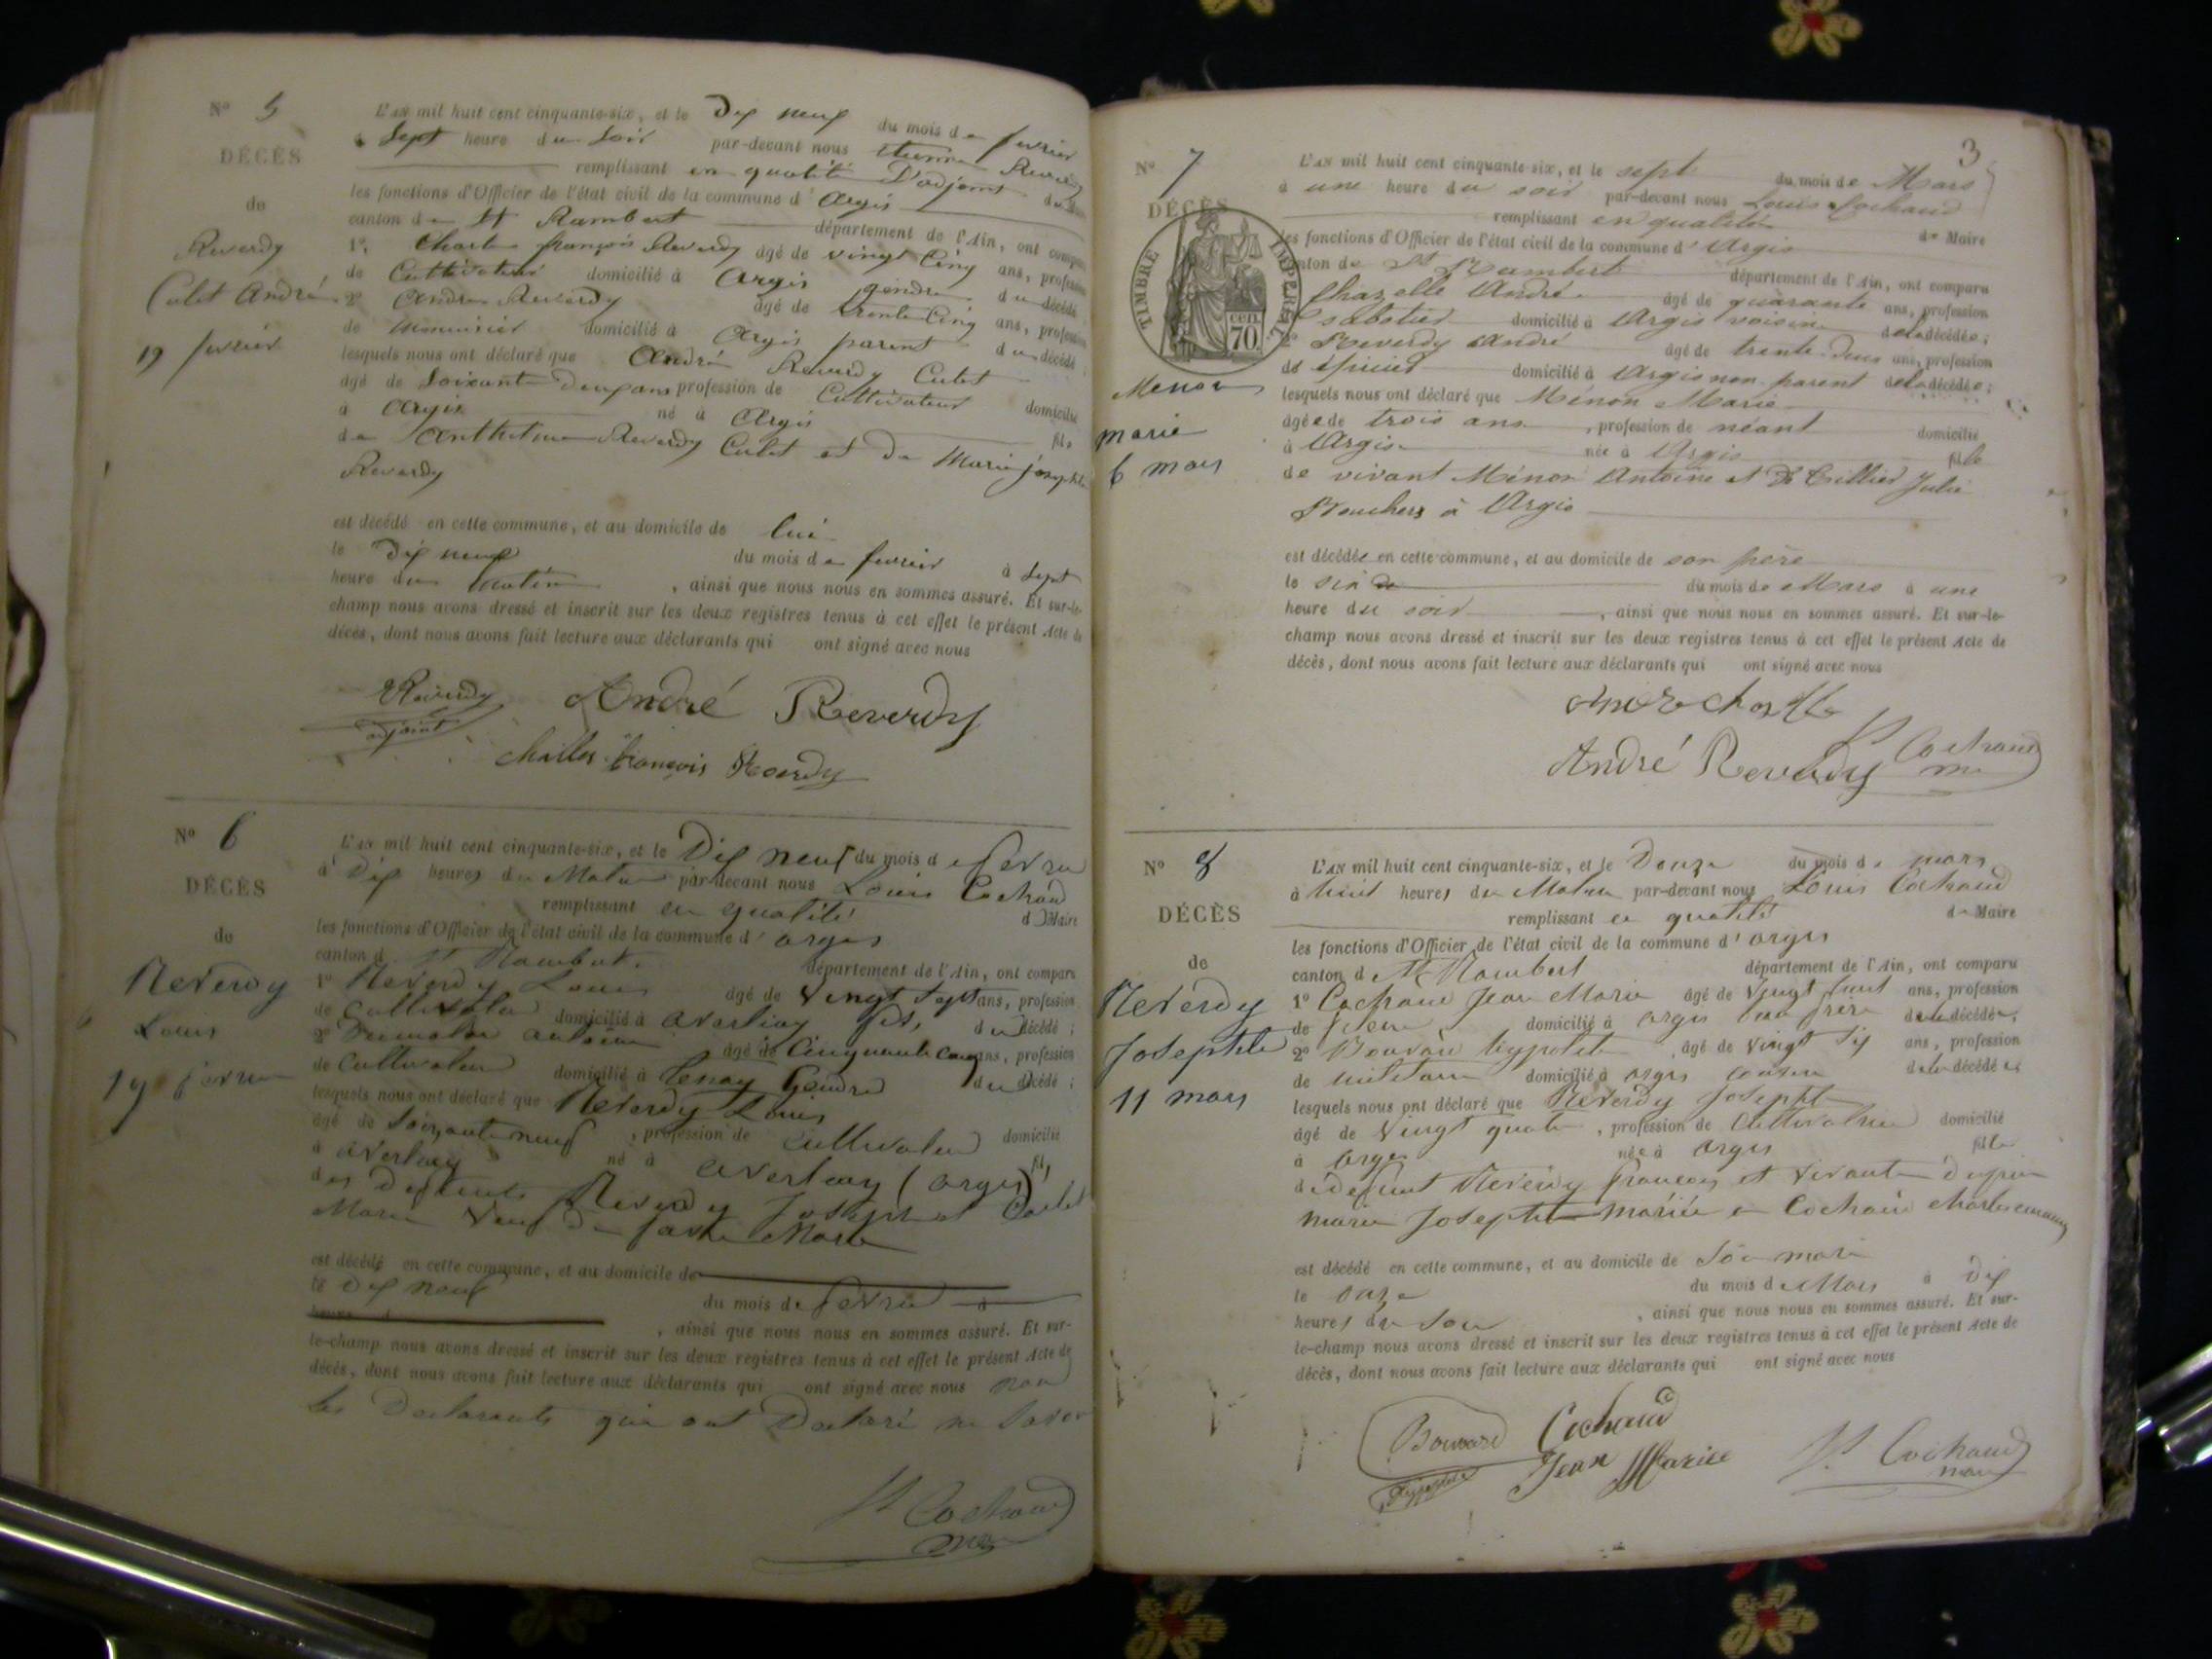 N° 5
DÉCÈS
de
Reverdy
Culet André
19 fevrier
L'AN mil huit cent cinquante-six, et le Dix neuf du mois de fevrier
à Sept heure du Soir par-devant nous Etienne Reverdy
remplissant en qualité d'adjoint
les fonctions d'Officier de l'état civil de la commune d'Argis
canton de St Rambert département de l'Ain, ont comparu
1° Charles françois Reverdy âgé de vingt Cinq ans, profession
de Cultivateur domicilié à Argis gendre du décédé
2° André Reverdy âgé de trente Cinq ans, profession
de Menuisier domicilié à Argis parent du décédé
lesquels nous ont déclaré que André Reverdy Culet
âgé de Soixante Deux ans profession de Cultivateur domicilié
à Argis né à Argis fils
de Anthelme Reverdy Culet et de Marie josephte
Reverdy
est décédé en cette commune, et au domicile de lui
le Dix neuf du mois de fevrier à Sept
heure du Matin , ainsi que nous nous en sommes assuré. Et sur-le-
champ nous avons dressé et inscrit sur les deux registres tenus à cet effet le présent Acte de
décès, dont nous avons fait lecture aux déclarants qui ont signé avec nous
Reverdy André Reverdy
adjoint
charles françois Reverdy
N° 6
DÉCÈS
de
Reverdy
Louis
19 fevrier
L'AN mil huit cent cinquante-six, et le Dix neuf du mois de fevrier
à Dix heures du Matin par-devant nous Louis Cochaud
remplissant en qualité de Maire
les fonctions d'Officier de l'état civil de la commune d'argis
canton d St Rambert département de l'Ain, ont comparu
1° Reverdy Louis âgé de Vingt Sept ans, profession
de Cultivateur domicilié à averliay fils, du décédé ;
2° antoine âgé de Cinquante Cinq ans, profession
de Cultivateur domicilié à tenay Gendre du décédé ;
lesquels nous ont déclaré que Reverdy Louis
âgé de Soixante neuf , profession de Cultivateur domicilié
à averliay né à averliay (argis) fils
des Deffunts Reverdy Joseph et
Marie Veuf De Marie
est décédé en cette commune, et au domicile de
le Dix neuf du mois de fevrier à
heure d , ainsi que nous nous en sommes assuré. Et sur-
le-champ nous avons dressé et inscrit sur les deux registres tenus à cet effet le présent Acte de
décès, dont nous avons fait lecture aux déclarants qui ont signé avec nous non
les Declarants qui ont Declaré ne Savoir
Ls Cochaud
maire
3
N° 7
DÉCÈS
TIMBRE IMPÉRIAL
cen.
70
Menon
marie
6 mars
L'AN mil huit cent cinquante-six, et le sept du mois de Mars
à une heure du soir par-devant nous Louis Cochaud
remplissant en qualité de Maire
les fonctions d'Officier de l'état civil de la commune d'Argis
canton de St Rambert département de l'Ain, ont comparu
Chazelle André âgé de quarante ans, profession
sabotier domicilié à Argis voisin de la décédée ;
Reverdy André âgé de trente Deux ans, profession
de épicier domicilié à Argis non parent de la décédée ;
lesquels nous ont déclaré que Ménon Marie
âgée de trois ans , profession de néant domicilié
à Argis née à Argis fille
de vivant Ménon Antoine et De Tillier Julie
Bouchers à Argis
est décédée en cette commune, et au domicile de son père
le six du mois de Mars à une
heure du soir , ainsi que nous nous en sommes assuré. Et sur-le-
champ nous avons dressé et inscrit sur les deux registres tenus à cet effet le présent Acte de
décès, dont nous avons fait lecture aux déclarants qui ont signé avec nous
André Reverdy Ls Cochaud
N° 8
DÉCÈS
de
Reverdy
Josephte
11 mars
L'AN mil huit cent cinquante-six, et le Douze du mois de mars
à huit heures du Matin par-devant nous Louis Cochaud
remplissant en qualité de Maire
les fonctions d'Officier de l'état civil de la commune d'argis
canton d St Rambert département de l'Ain, ont comparu
1° Cochaud Jean Marie âgé de Vingt huit ans, profession
de domicilié à argis beau frère de la décédée,
2° Bouvard hyppolite âgé de Vingt Six ans, profession
de militaire domicilié à argis cousin de la décédée
lesquels nous ont déclaré que Reverdy Josephte
âgé de Vingt quatre , profession de Cultivatrice domicilié
à argis née à argis fille
de defunt Reverdy François et Vivante
marie Josephte mariée a Cochaud
est décédé en cette commune, et au domicile de Son mari
le onze du mois de Mars à Dix
heures du Soir , ainsi que nous nous en sommes assuré. Et sur-
le-champ nous avons dressé et inscrit sur les deux registres tenus à cet effet le présent Acte de
décès, dont nous avons fait lecture aux déclarants qui ont signé avec nous
Bouvard Cochaud
hippolite Jean Marie Ls Cochaud
maire